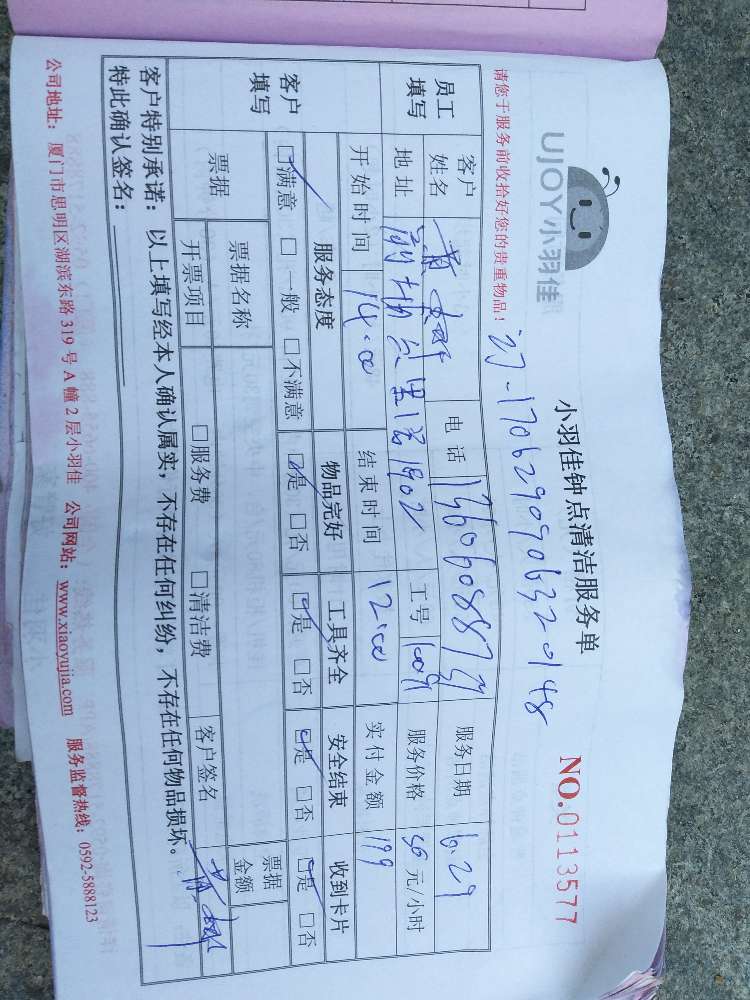 UJOY小羽佳
小羽佳钟点清洁服务单
NO.0113577
请您于服务前收拾好您的贵重物品！
1706290906320148
员工填写
客户姓名 电话 服务日期 6.29
地址 1902 工号 服务价格 元/小时
开始时间 14:00 结束时间 12:00 实付金额 199
客户填写
服务态度 物品完好 工具齐全 安全结束 收到卡片
☑满意 □一般 □不满意 ☑是 □否 ☑是 □否 ☑是 □否 ☑是 □否
票据 票据名称 票据金额
开票项目 □服务费 □清洁费 客户签名
客户特别承诺：以上填写经本人确认属实，不存在任何纠纷，不存在任何物品损坏。
特此确认签名：
公司地址：厦门市思明区湖滨东路319号A幢2层小羽佳 公司网站：www.xiaoyujia.com 服务监督热线：0592-5888123